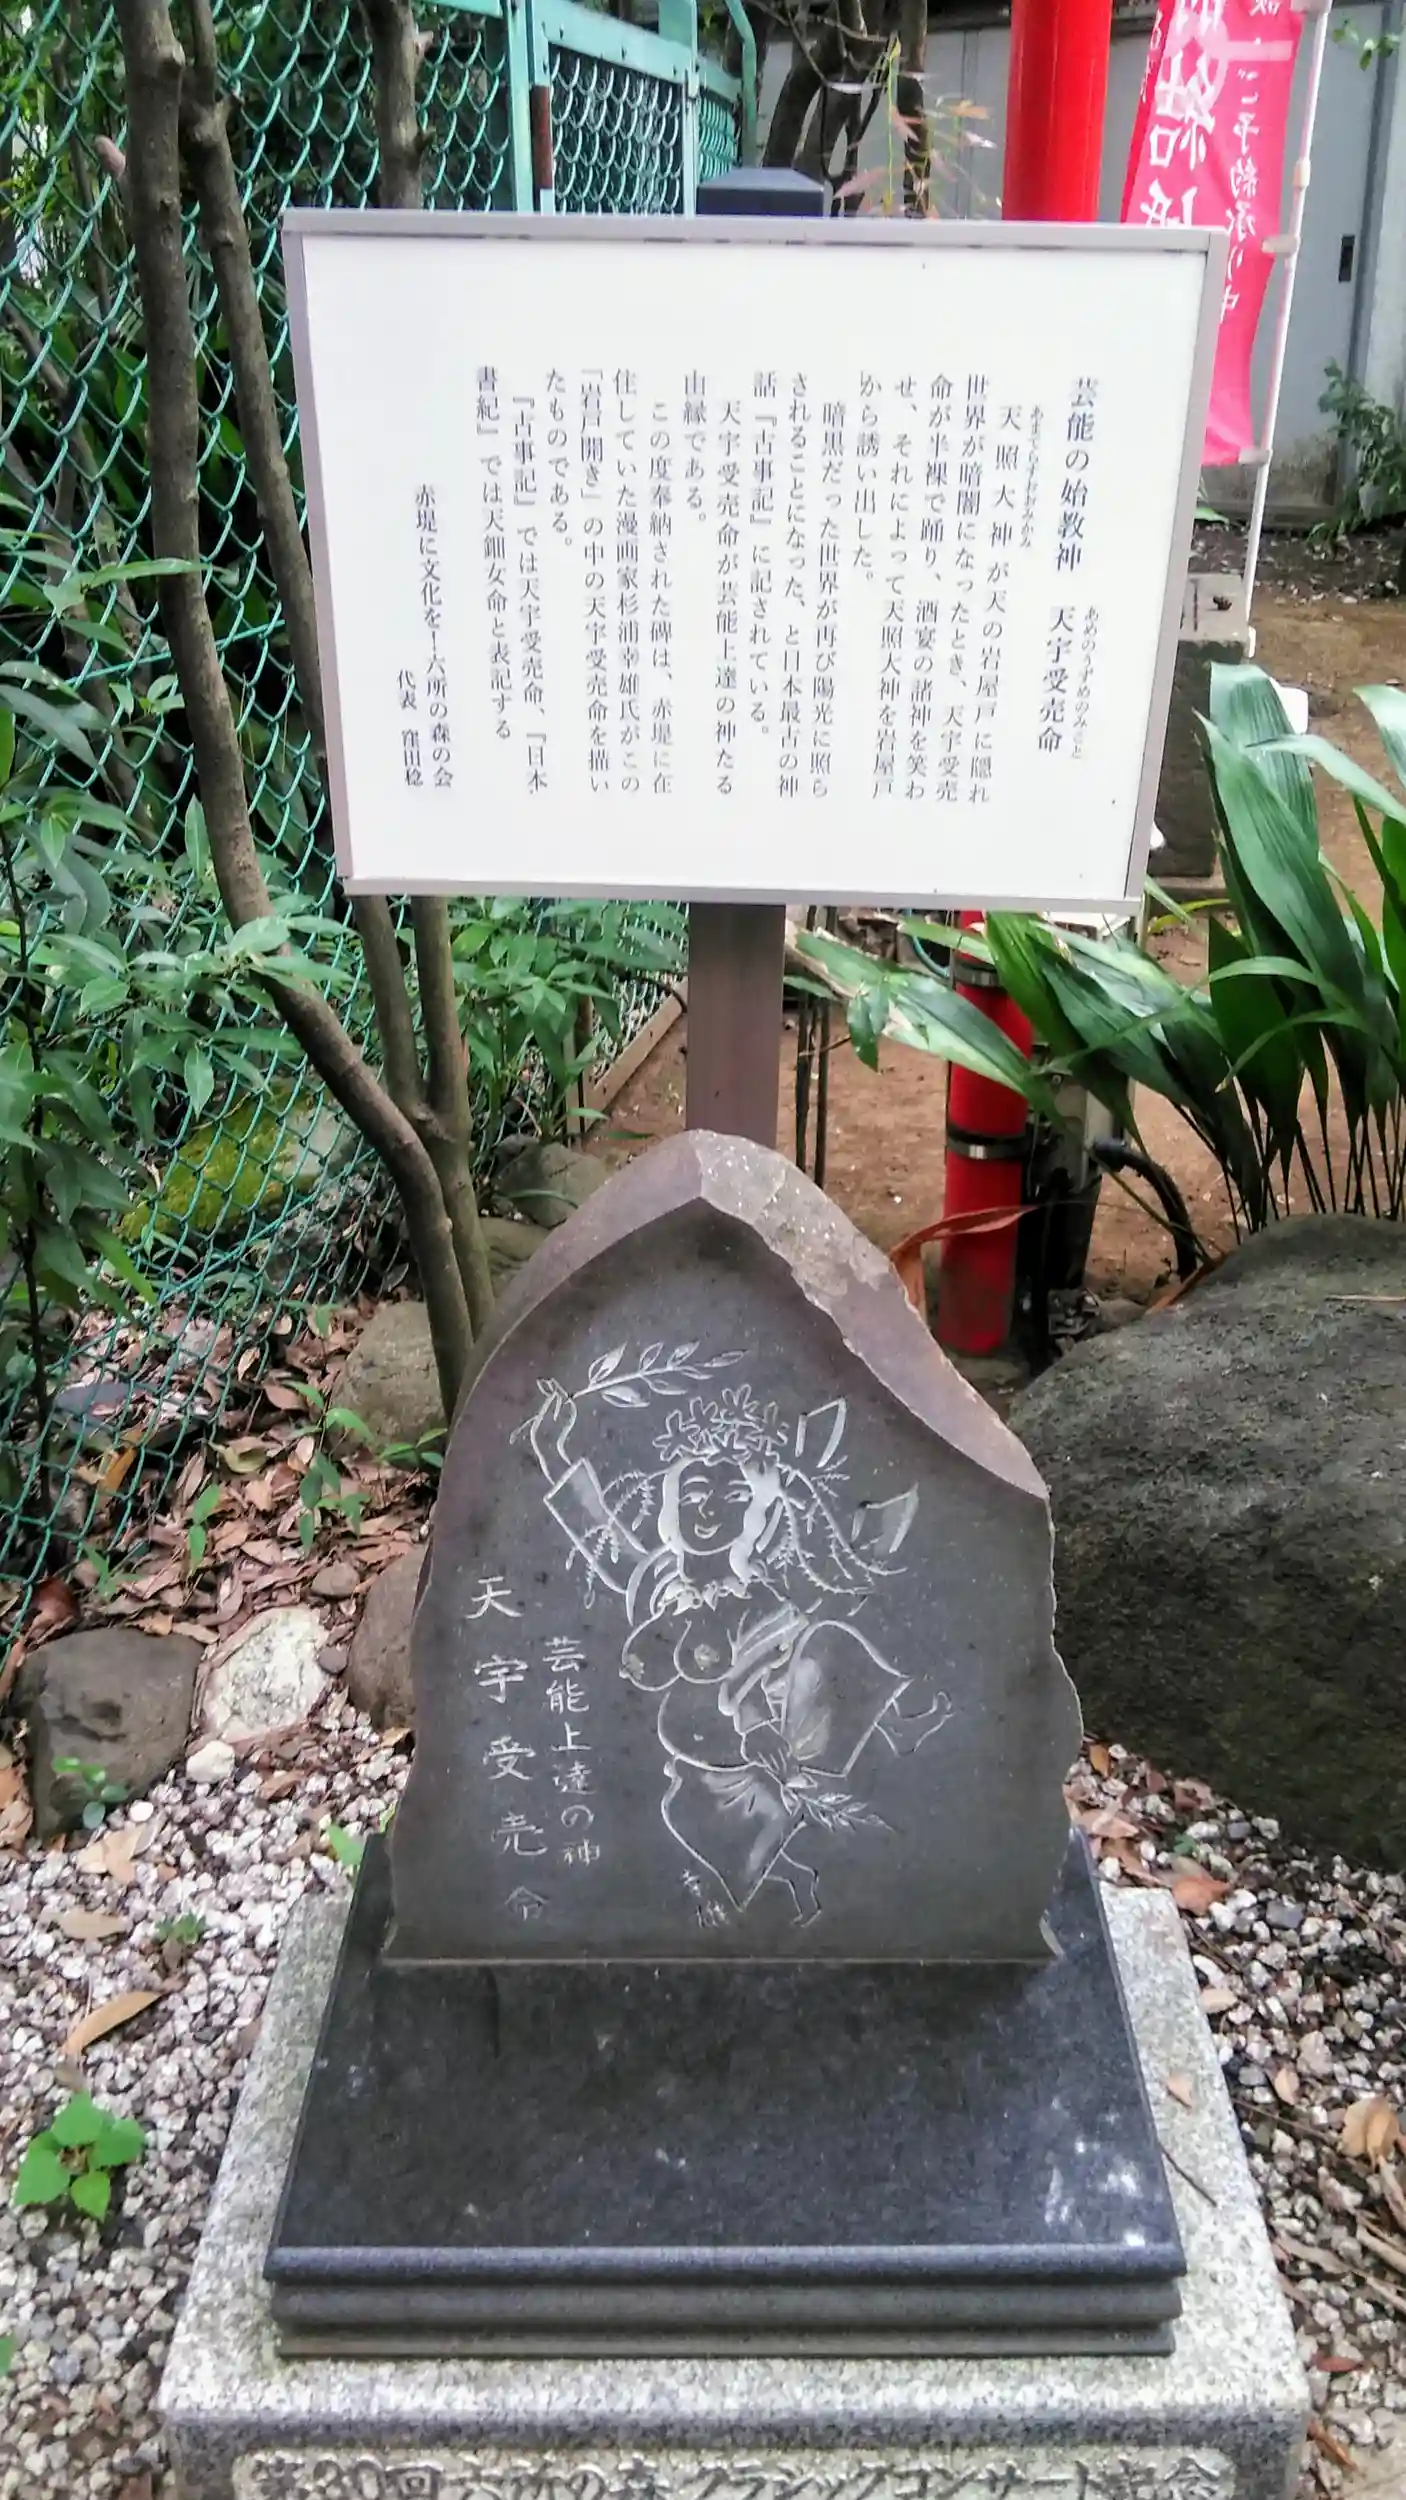 芸能の始教神　天宇受売命
あめのうずめのみこと
あまてらすおおみかみ
天照大神が天の岩屋戸に隠れ
世界が暗闇になったとき、天宇受売
命が半裸で踊り、酒宴の諸神を笑わ
せ、それによって天照大神を岩屋戸
から誘い出した。
暗黒だった世界が再び陽光に照ら
されることになった、と日本最古の神
話『古事記』に記されている。
天宇受売命が芸能上達の神たる
由縁である。
この度奉納された碑は、赤堤に在
住していた漫画家杉浦幸雄氏がこの
「岩戸開き」の中の天宇受売命を描い
たものである。
『古事記』では天宇受売命、『日本
書紀』では天鈿女命と表記する
赤堤に文化を！六所の森の会
代表　窪田稔
ご予約承り中
芸能上達の神
天宇受売命
幸雄
第30回六所の森クラシックコンサート記念